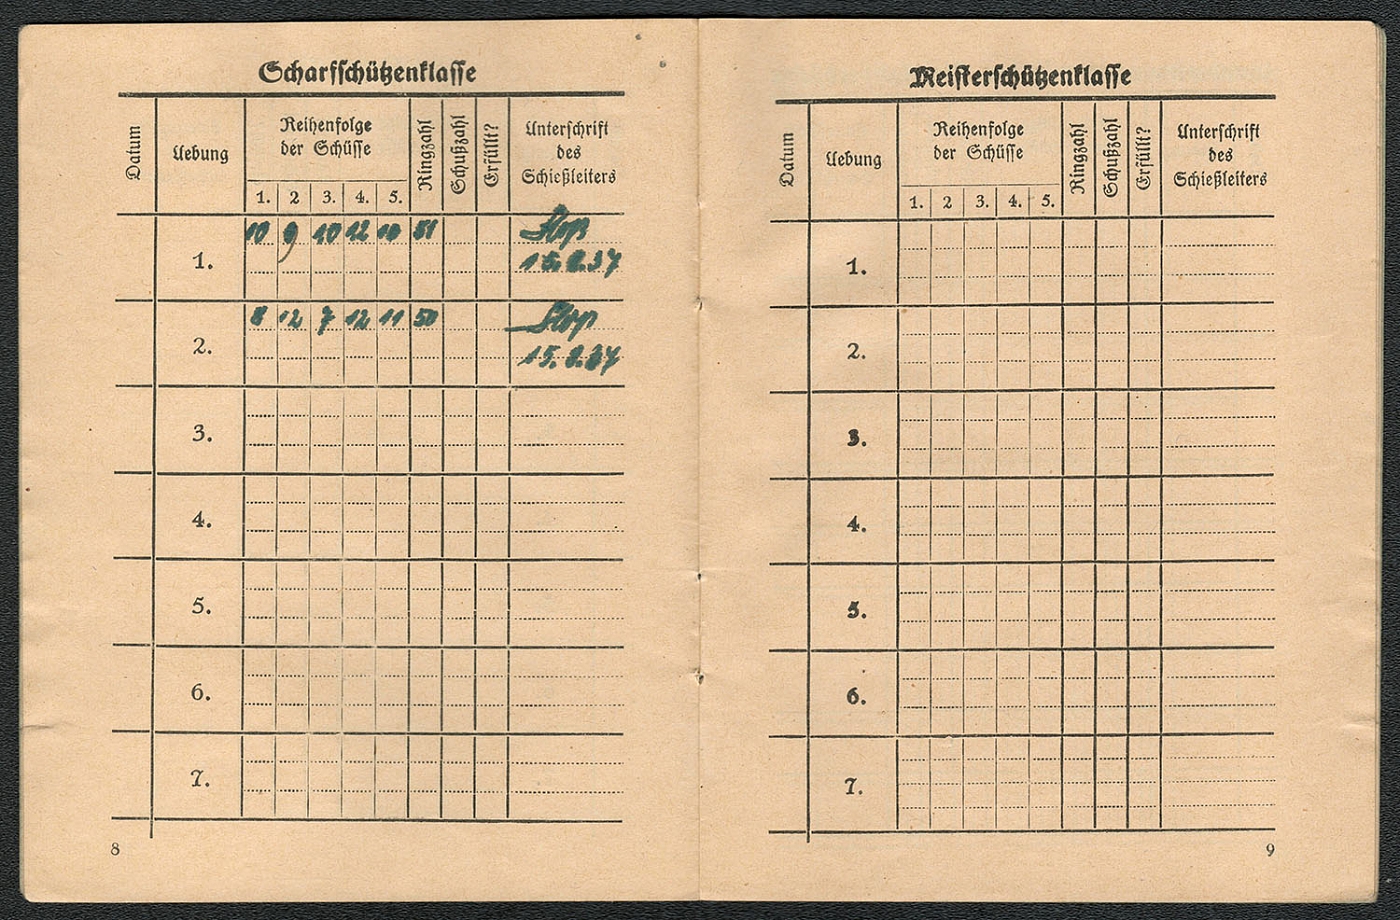 Scharfschützenklasse
Datum Uebung Reihenfolge der Schüsse Ringzahl Schußzahl Erfüllt? Unterschrift des Schießleiters
1. 2 3. 4. 5.
1. 10 9 10 12 10 51
2. 8 12 7 12 11 50
3.
4.
5.
6.
7.
8
Meisterschützenklasse
Datum Uebung Reihenfolge der Schüsse Ringzahl Schußzahl Erfüllt? Unterschrift des Schießleiters
1. 2 3. 4. 5.
1.
2.
3.
4.
5.
6.
7.
9